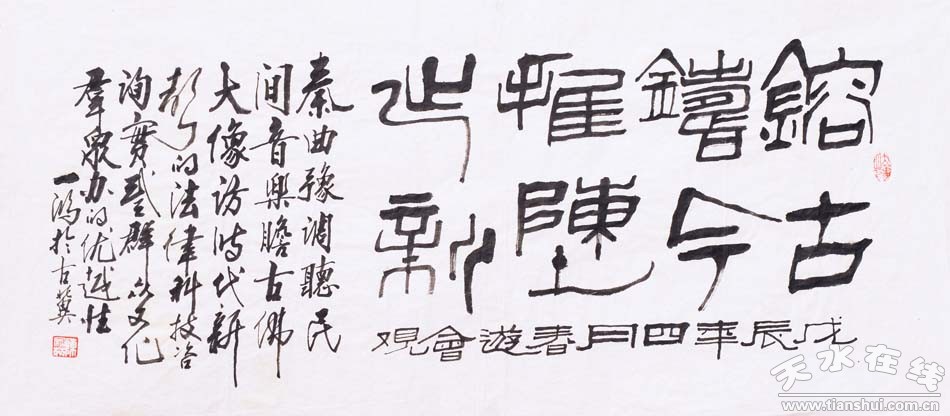 鎔古
鑄今
推陳
出新
戊辰年四月春遊會觀
秦曲豫調聽民
間音樂瞻古佛
大像訪時代新
的法律科技咨
詢實群众文化
羣衆办的优越性
一鴻於古冀
天水在线
www.tianshui.com.cn